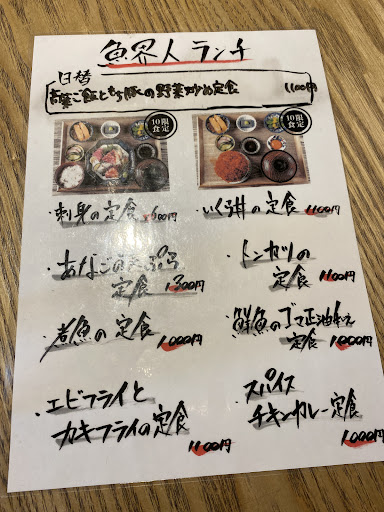 魚界人ランチ
日替
高菜ご飯ともち豚の野菜炒め定食 1100円
10食限定
10食限定
・刺身の定食 1,300円
・いくら丼の定食 1100円
・あなご天ぷら定食 1,300円
・トンカツの定食 1100円
・煮魚の定食 1,000円
・鮮魚のゴマ正油和え定食 1,000円
・エビフライと
カキフライの定食
1100円
・スパイス
チキンカレー定食
1,000円